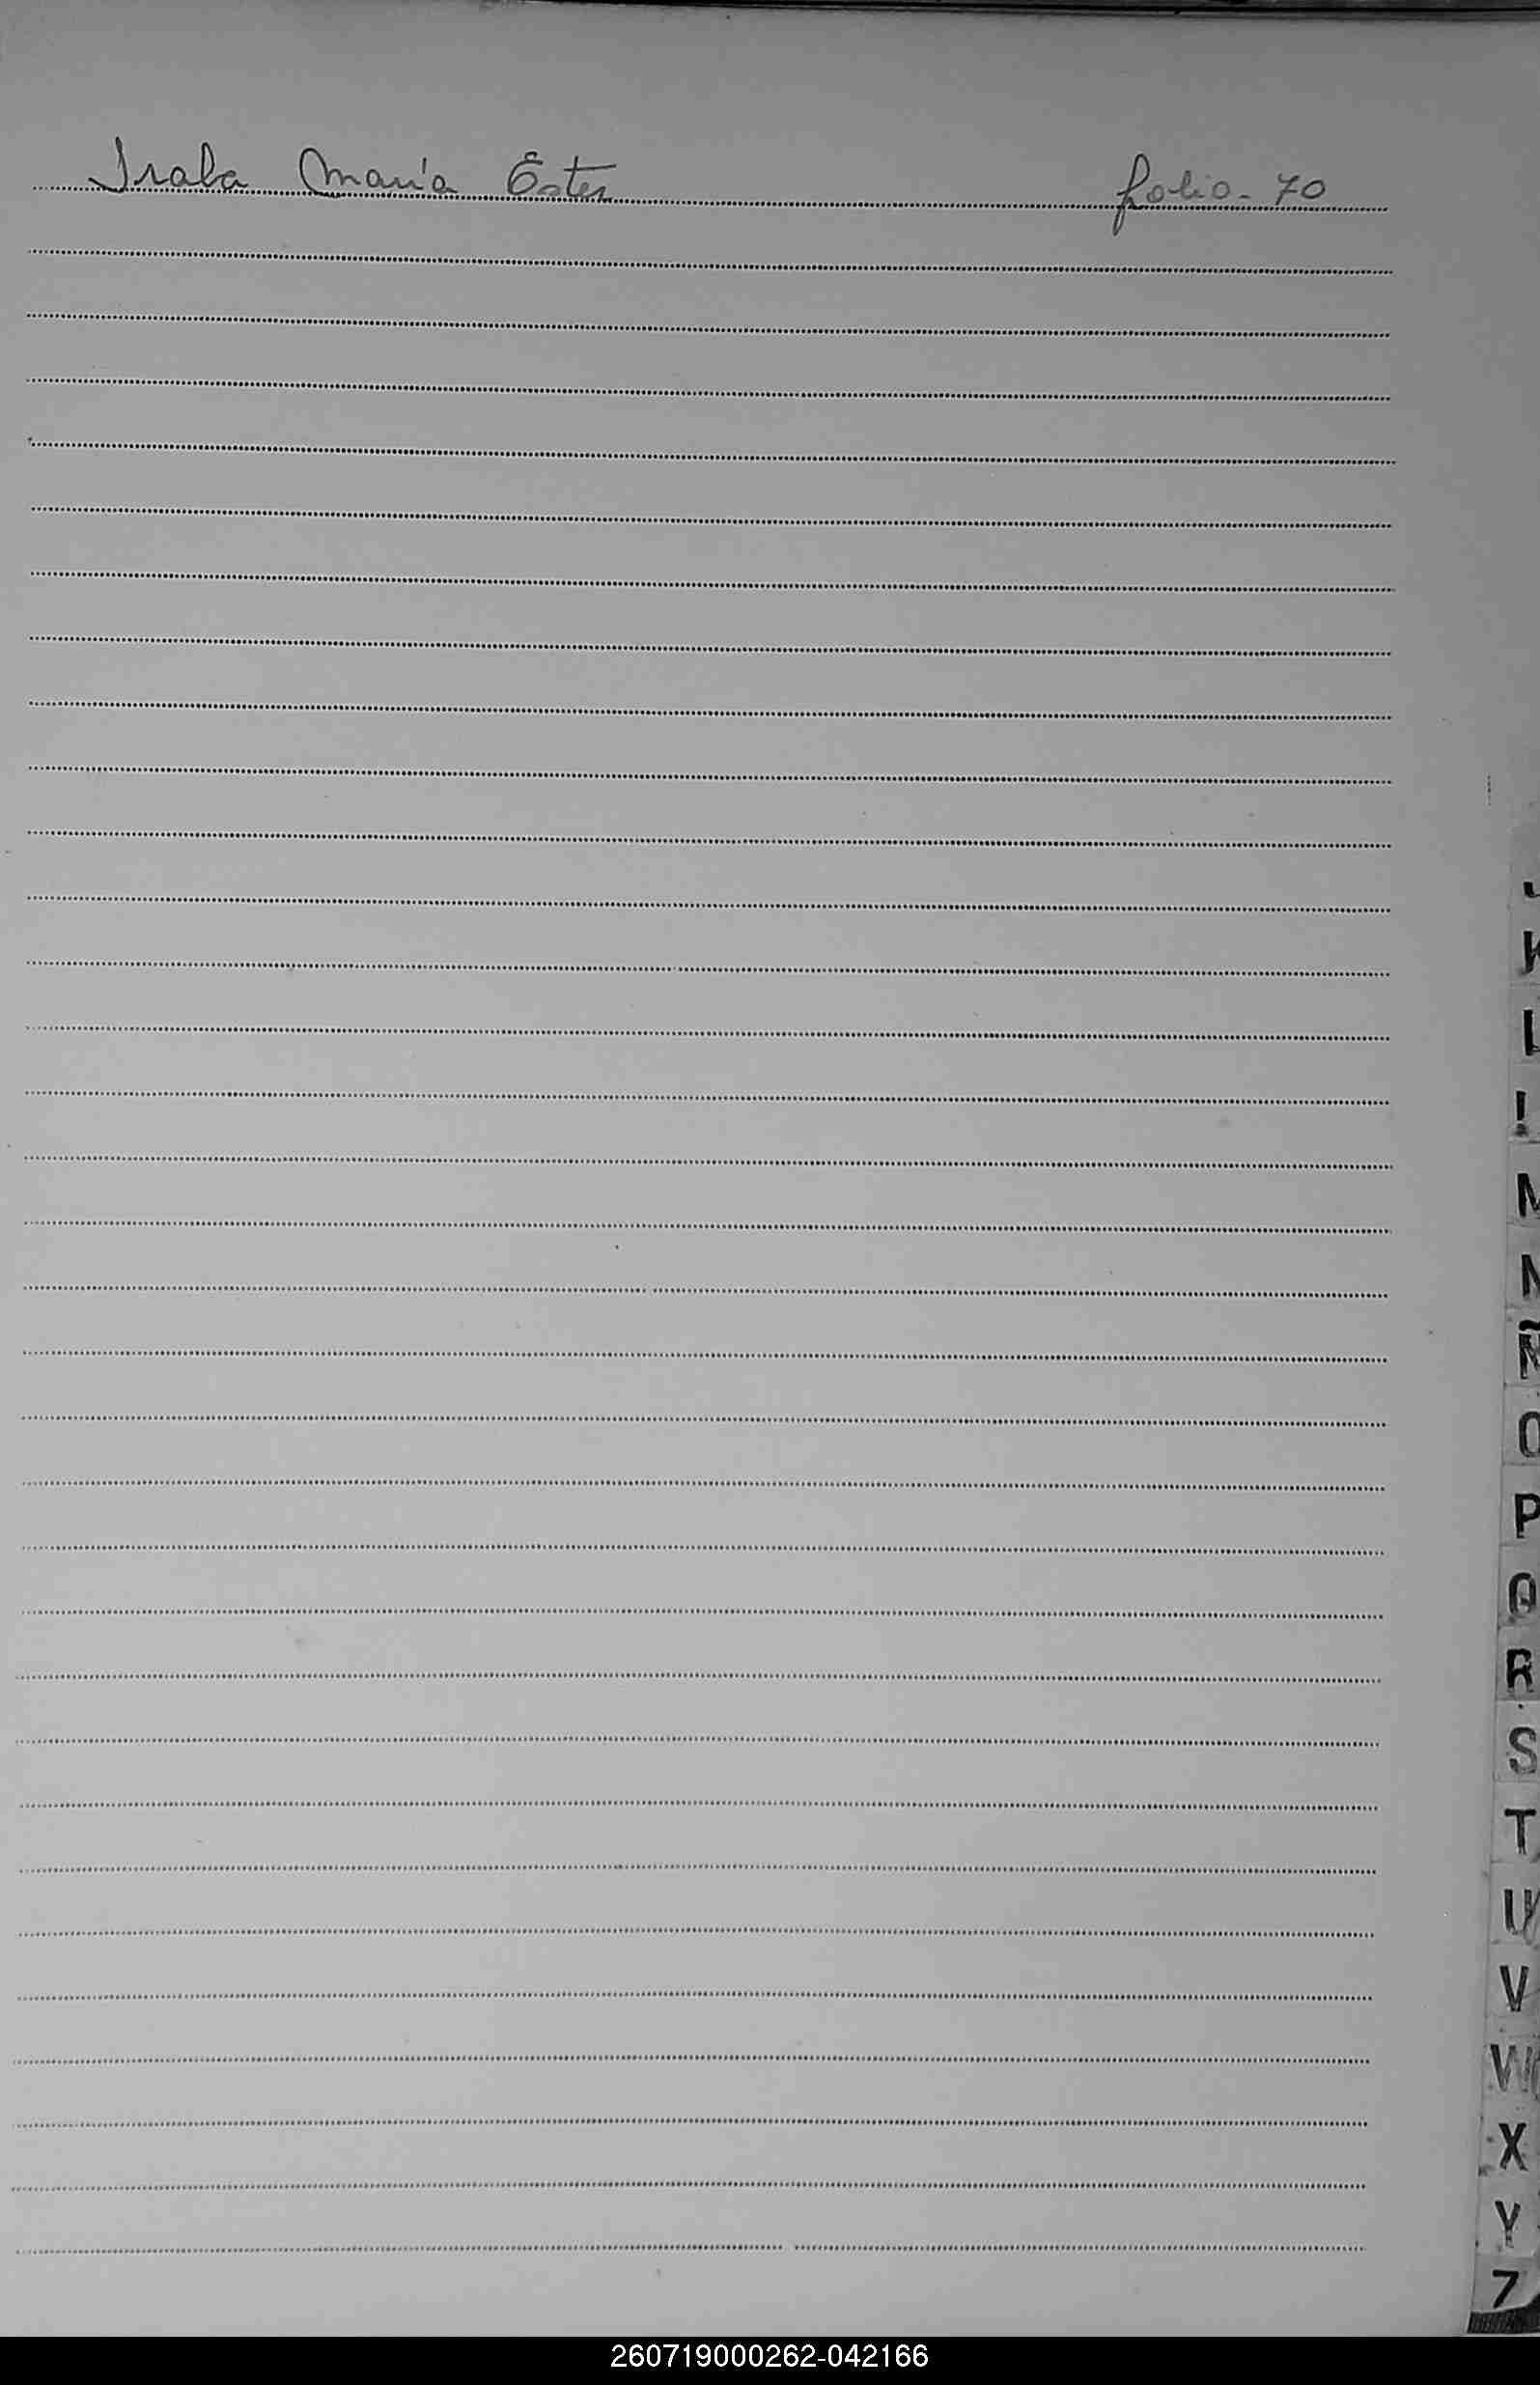 Irala María Ester folio - 70
J
K
L
M
N
Ñ
O
P
Q
R
S
T
U
V
W
X
Y
Z
260719000262-042166